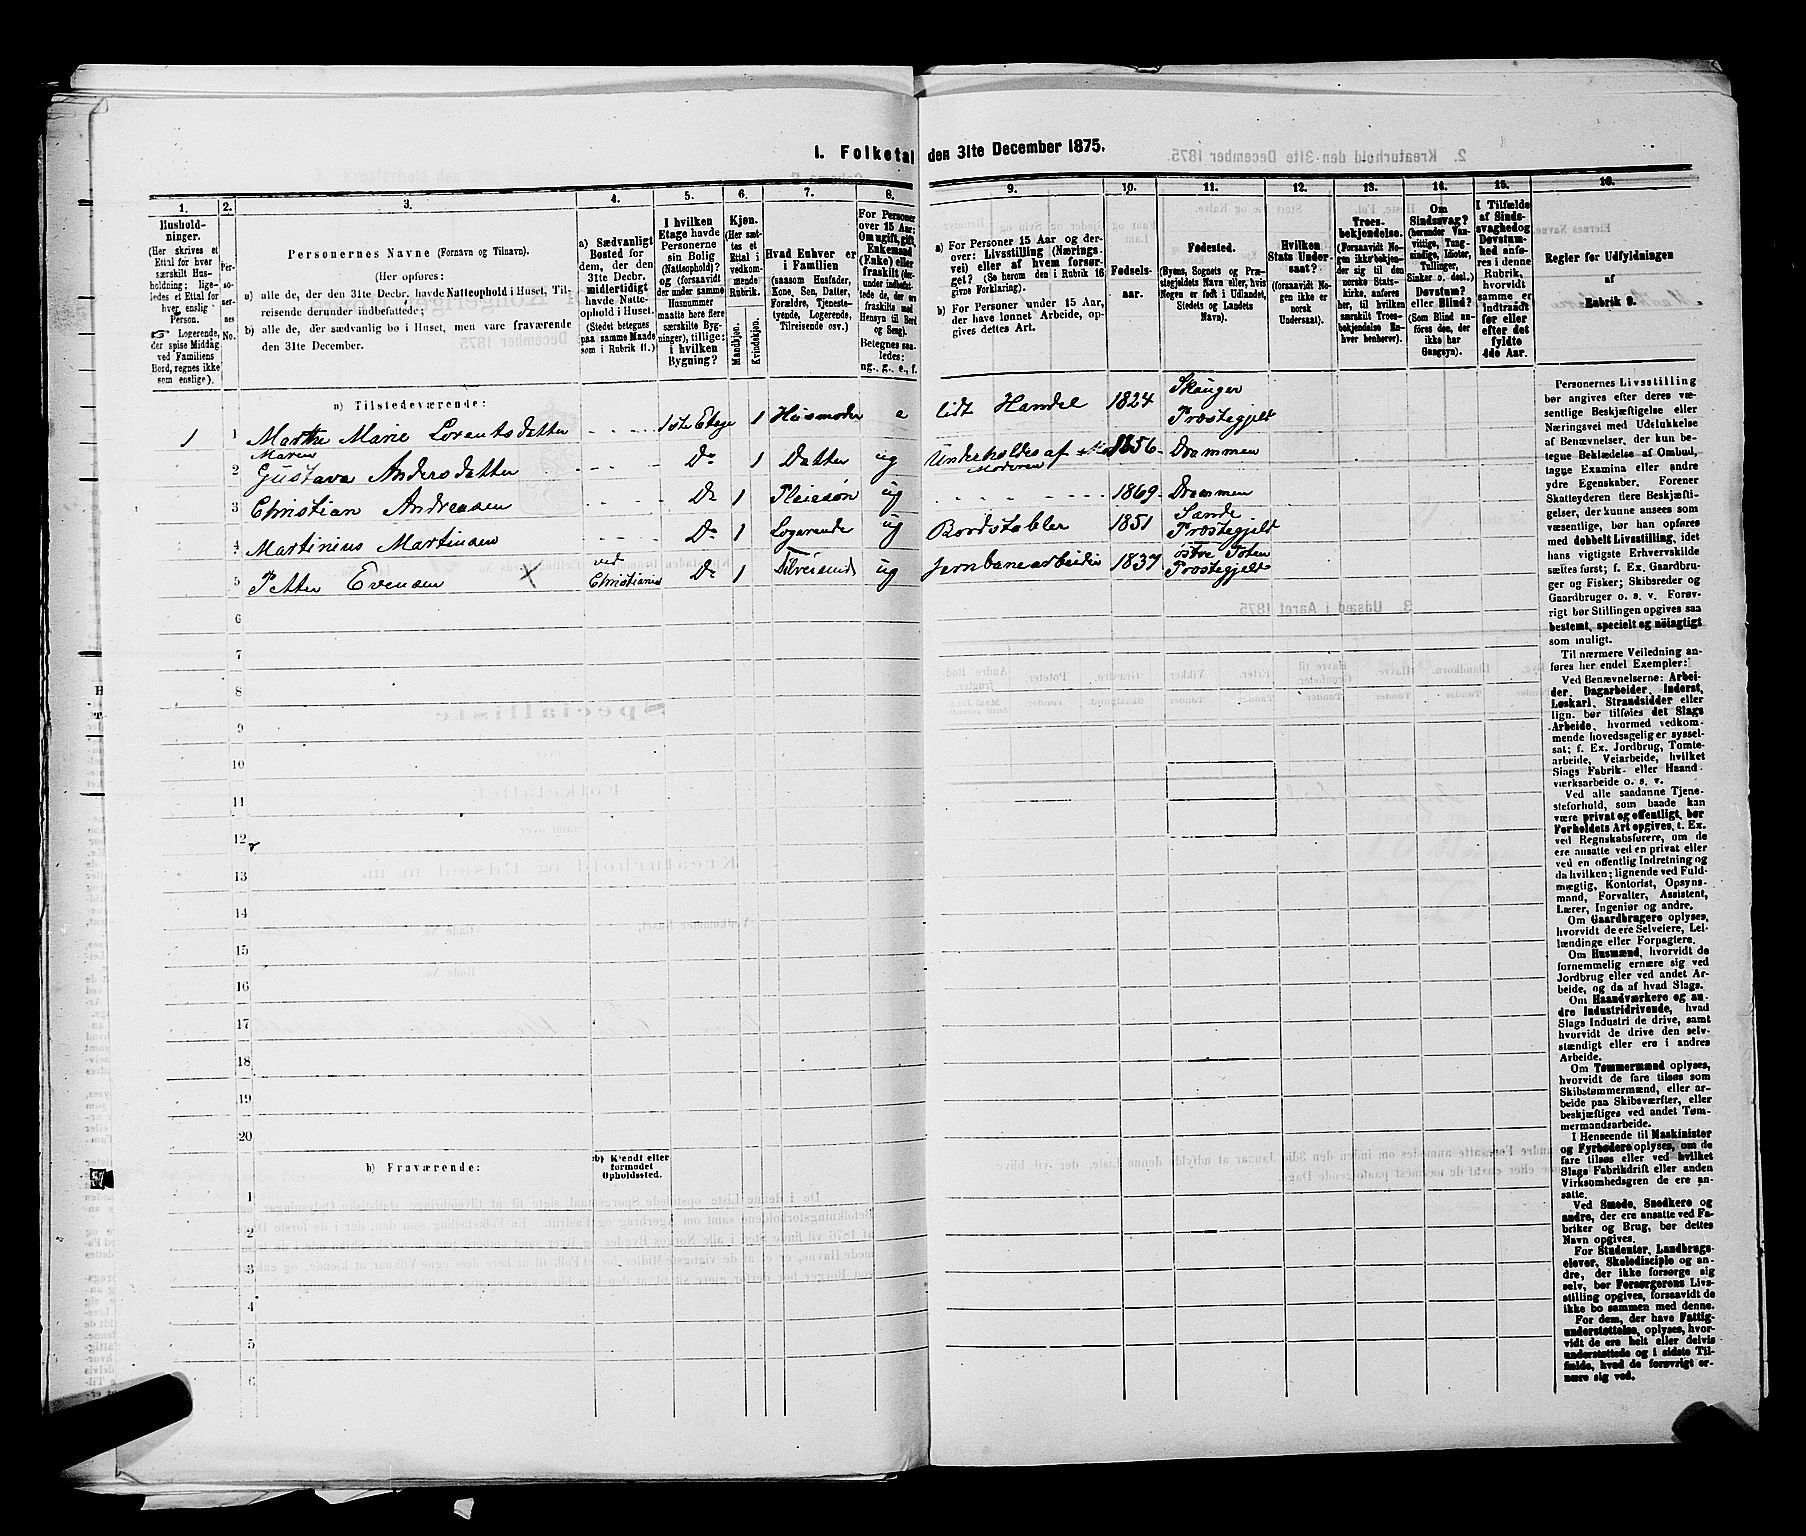 1. Folketal den 31te December 1875.
1.
2.
3.
4.
5.
6.
7.
8.
9.
10.
11.
12.
13.
14.
15.
16.
Husholdninger.
(Her skrives et
Ettal for hver
særskilt Husholdning;
ligeledes et Ettal for
hver enslig
Person.
☞ Logerende,
der spise Middag
ved Familiens
Bord, regnes ikke
som enslige).
Personernes No.
Personernes Navne (Fornavn og Tilnavn).
(Her opføres:
a) alle de, der den 31te Decbr. havde Natteophold i Huset, Tilreisende derunder indbefattede;
b) alle de, der sædvanlig bo i Huset, men vare fraværende
den 31te December.
a) Sædvanligt
Bosted for
dem, der den
31te Decbr.
midlertidigt
havde Natteophold
i Huset.
(Stedet betegnes
paa samme Maade
som i Rubrik 11.)
I hvilken
Etage havde
Personerne
sin Bolig
(Natteophold)?
og (forsaavidt
der under samme
Husnummer
maatte høre flere
særskilte Bygninger),
tillige:
i hvilken
Bygning?
Kjøn.
(Her sættes
et
Ettal i
vedkommende
Rubrik.
Mandkjøn.
Kvindekjøn.
Hvad Enhver er
i Familien
(saasom Husfader,
Kone, Søn, Datter,
Forældre, Tjenestetyende,
Logerende,
Tilreisende osv.)
For Personer
over 15 Aar:
Om ugift, gift,
Enkemand
(Enke) eller
fraskilt
Hensyn til Bord
og Seng).
Betegnes saaledes:
ug., g., e., f.
a) For Personer 15 Aar og derover:
Livsstilling (Næringsvei)
eller af hvem forsørget?
(Se herom den i Rubrik 16
givne Forklaring).
b) For Personer under 15 Aar,
der have lønnet Arbeide, opgives
dettes Art.
Fødselsaar.
Fødested.
(Byens, Sognets og Præstegjeldets
Navn eller, hvis
Nogen er født i Udlandet,
Stedets og Landets
Navn).
Hvilken
Stats Undersaat?
(forsaavidt Nogen
ikke er
norsk
Undersaat).
Troesbekjendelse.
(Forsaavidt Nogen
ikke bekjender
sig til den
norske Statskirke,
anføres
her, til hvilken
særskilte Troesbekjendelse
Enhver
henhører).
Om
Sindssvag?
(herunder Vanvittige,
Tungsindige,
Idioter,
Tullinger,
Sinker o. desl.)
Døvstum?
eller Blind?
(Som Blind anføres
den, der
ikke har
Gangsyn).
I Tilfælde
af Sindssvaghed
og
Døvstumhed
anføres
i denne
Rubrik,
hvorvidt
samme er
indtraadt
før eller
efter det
fyldte
4de Aar.
Regler for Udfyldningen
af
Rubrik 9.
a) Tilstedeværende:
1 1 Marthe Marie Lorentsdatter 1ste Etage 1 Husmoder e lidt Handel 1824 Skauger Præstegjeld
2 Maren Gustava Andersdatter Do 1 Datter ug Underholdes af Moderen 1856 Drammen
3 Christian Andreasen Do 1 Pleiesøn ug 1869 Drammen
4 Martinius Martinsen Do 1 Logerende ug Bordstabler 1851 Sande Præstegjeld
5 Petter Evensen × ved Christiania Do 1 Tilreisende ug Jernbanearbeider 1837 østre Toten Præstegjeld
6
7
8
9
10
11
12
13
14
15
16
17
18
19
20
b) Fraværende:
b) Kjendt eller
formodet
Opholdssted.
1
2
3
4
5
6
Personernes Livsstilling
bør angives efter deres væsentlige
Beskjæftigelse eller
Næringsvei med Udelukkelse
af Benævnelser, der kun betegne
Beklædelse af Ombud,
tagne Examina eller andre
ydre Egenskaber. Forener
Skatteyderen flere Beskjæftigelser,
der kunne ansees som
væsentlige, bør han opføres
med dobbelt Livsstilling, idet
hans vigtigste Erhvervskilde
sættes først; f. Ex. Gaardbruger
og Fisker; Skibsreder og
Gaardbruger o. s. v. Forøvrigt
bør Stillingen opgives saa
bestemt, specielt og nøiagtigt
som muligt.
Til nærmere Veiledning anføres
her endel Exempler:
Ved Benævnelserne: Arbeider,
Dagarbeider, Inderst,
Løskarl, Strandsidder eller
lign. bør tilføies det Slags
Arbeide, hvormed vedkommende
hovedsagelig er sysselsat;
f. Ex. Jordbrug, Tomtearbeide,
Veiarbeide, hvilket
Slags Fabrik- eller Haandværksarbeide
o. s. v.
Ved alle saadanne Tjenesteforhold,
som baade kan
være privat og offentligt, bør
Forholdets Art opgives, t. Ex.
ved Regnskabsførere, om de
ere ansatte ved en privat eller
ved en offentlig Indretning og
da hvilken; lignende ved Fuldmægtig,
Kontorist, Opsynsmand,
Forvalter, Assistent,
Lærer, Ingeniør og andre.
Om Gaardbrugere oplyses,
hvorvidt de ere Selveiere, Leilændinge
eller Forpagtere.
Om Husmænd, hvorvidt de
fornemmelig ernære sig ved
Jordbrug eller ved andet Arbeide,
og da af hvad Slags.
Om Haandværkere og andre
Industridrivende, hvad
Slags Industri de drive, samt
hvorvidt de drive den selvstændigt
eller ere i andres
Arbeide.
Om Tømmermænd oplyses,
hvorvidt de fare tilsøs som
Skibstømmermænd, eller arbeide
paa Skibsværfter, eller
beskjæftiges ved andet Tømmermandsarbeide.
I Henseende til Maskinister
og Fyrbødere oplyses, om de
fare tilsøs eller ved hvilket
Slags Fabrikdrift eller anden
Virksomhedsgren de ere ansatte.
Ved Smede, Snedkere og
andre, der ere ansatte ved Fabriker
og Brug, bør dettes
Navn opgives.
For Studenter, Landbrugselever,
Skoledisciple og andre,
der ikke forsørge sig
selv, bør Forsørgerens Livsstilling
opgives, forsaavidt de
ikke bo sammen med denne.
For dem, der have Fattigunderstøttelse,
oplyses, hvorvidt
de ere helt eller delvis
understøttede og i sidste Tilfælde,
hvad de forøvrigt ernære
sig ved.